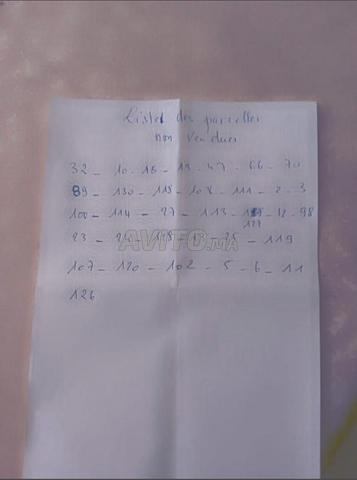 Liste des parcelles
non vendues
32 - 10 - 16 - 13 - 47 - 66 - 70
89 - 130 - 118 - 108 - 111 - 2 - 3
100 - 114 - 27 - 113 - 127 - 12 - 98
23 - 24 - - 25 - 119
107 - 120 - 102 - 5 - 6 - 11
126
AVITO.MA